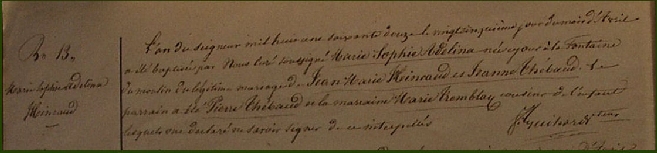 B. 13.
Marie Sophie Adelina
L'an du Seigneur mil huit cent soixante douze le vingt cinquième jour du mois d'Avril
a été baptisée par Nous Curé soussigné Marie Sophie Adelina née ce jour à la Fontaine
du légitime mariage de Jean Marie et Jeanne Thébaud. Le
parrain a été Pierre Thébaud et la marraine Marie Tremblay cousine de l'enfant
lesquels ont déclaré ne savoir signer de ce interpellés